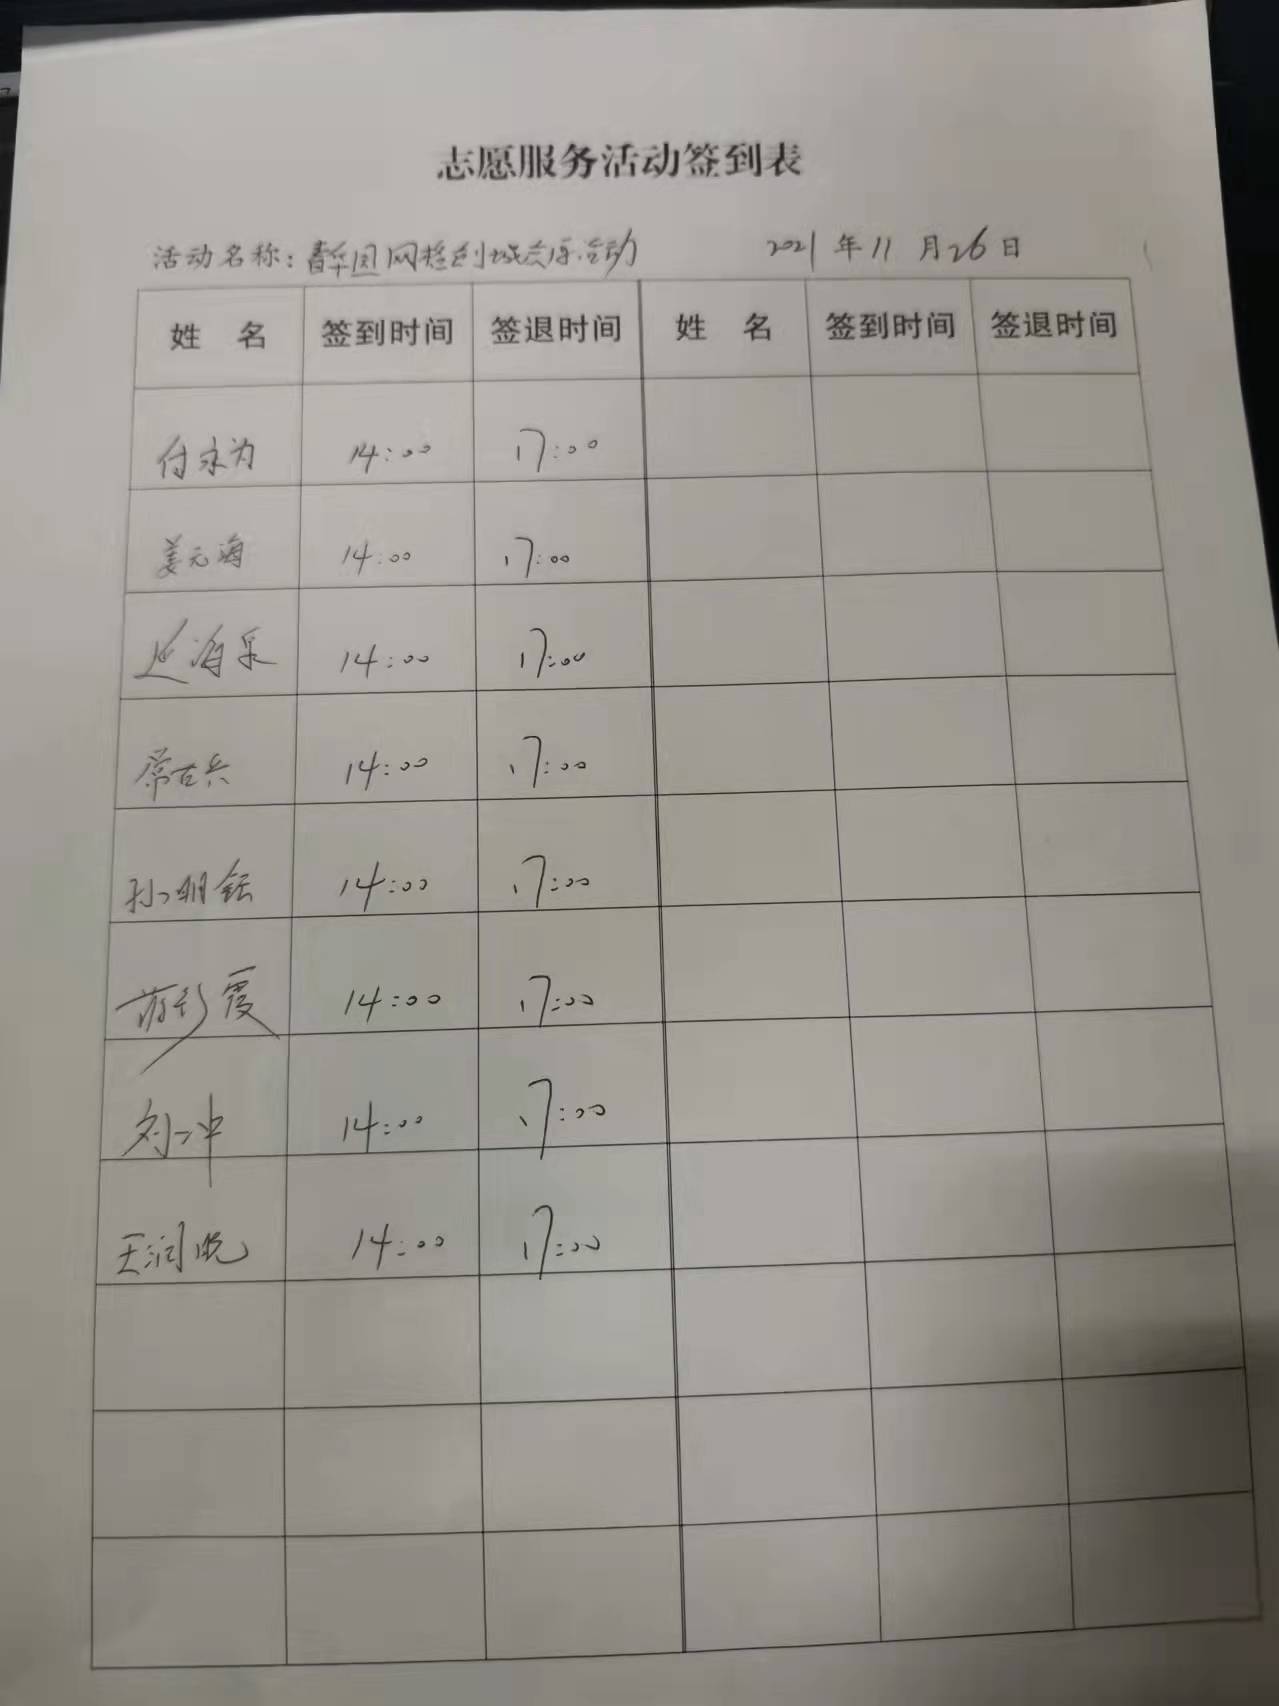 志愿服务活动签到表
活动名称：春华园网格创城志愿活动 2021年11月26日
姓 名 签到时间 签退时间 姓 名 签到时间 签退时间
付永为 14:00 17:00
姜元海 14:00 17:00
海乐 14:00 17:00
常古兵 14:00 17:00
孙明钰 14:00 17:00
彩霞 14:00 17:00
刘冲 14:00 17:00
王润晚 14:00 17:00